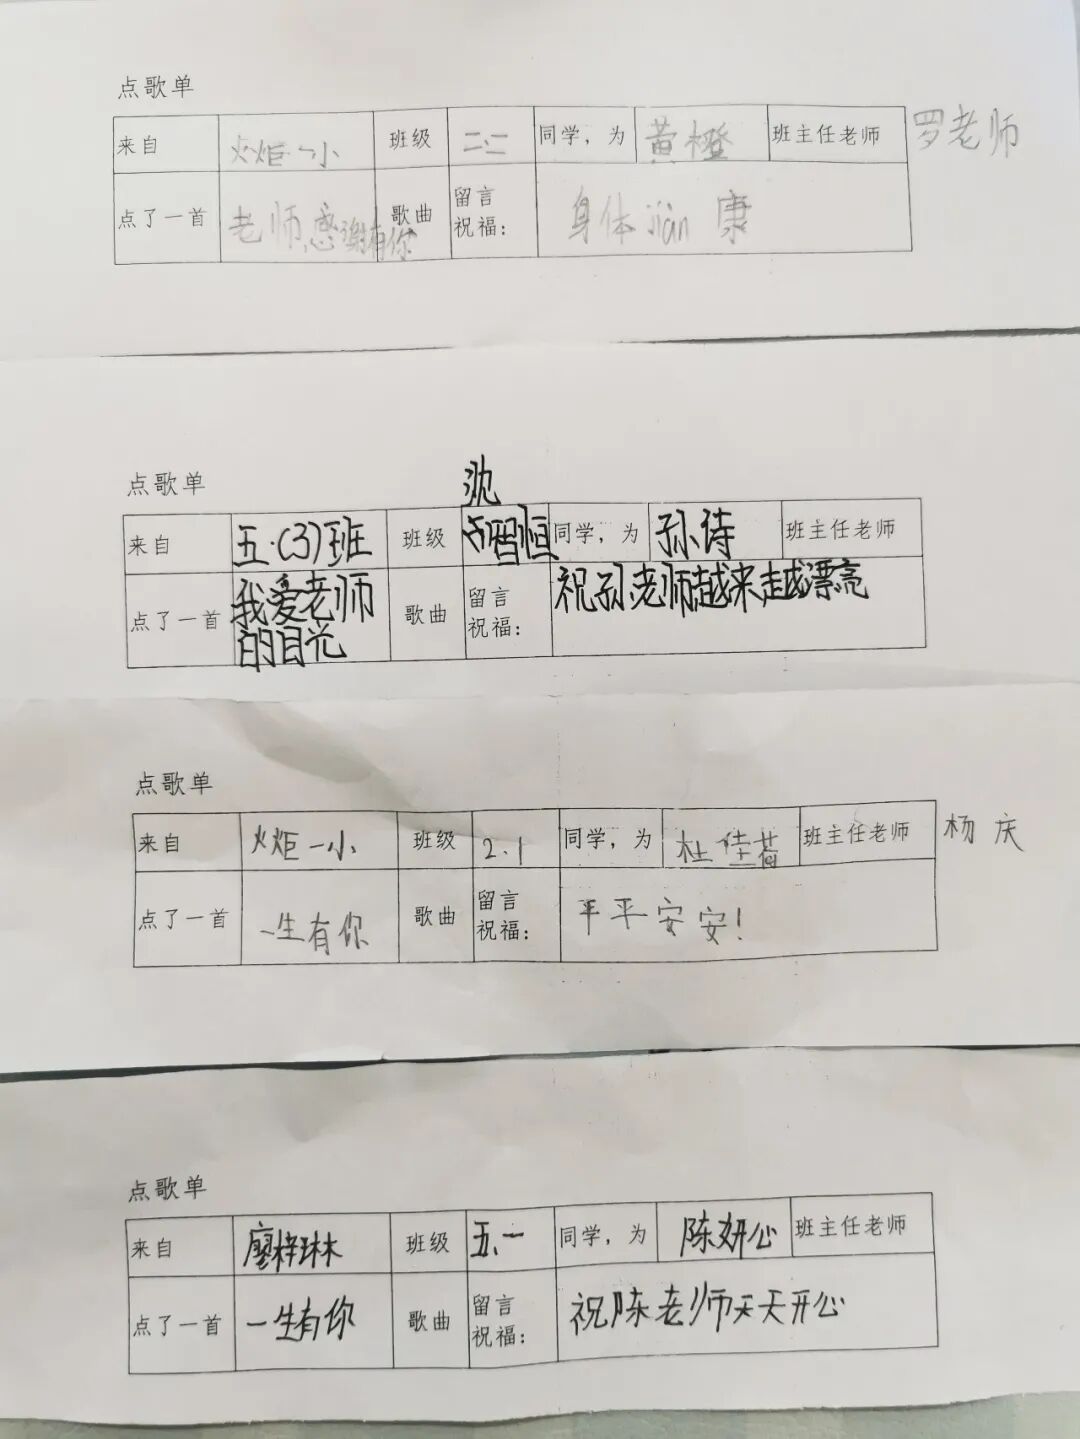 点歌单
来自 火炬一小 班级 二.二 同学，为 黄橙 班主任老师 罗老师
点了一首 老师,感谢有你 歌曲 留言祝福： 身体jiàn康
点歌单
沈
来自 五.(3)班 班级 智恒 同学，为 孙诗 班主任老师
点了一首 我爱老师的目光 歌曲 留言祝福： 祝孙老师越来越漂亮
点歌单
来自 火炬一小 班级 2.1 同学，为 杜佳 班主任老师 杨庆
点了一首 一生有你 歌曲 留言祝福： 平平安安！
点歌单
来自 廖梓琳 班级 五.一 同学，为 陈妍心 班主任老师
点了一首 一生有你 歌曲 留言祝福： 祝陈老师天天开心